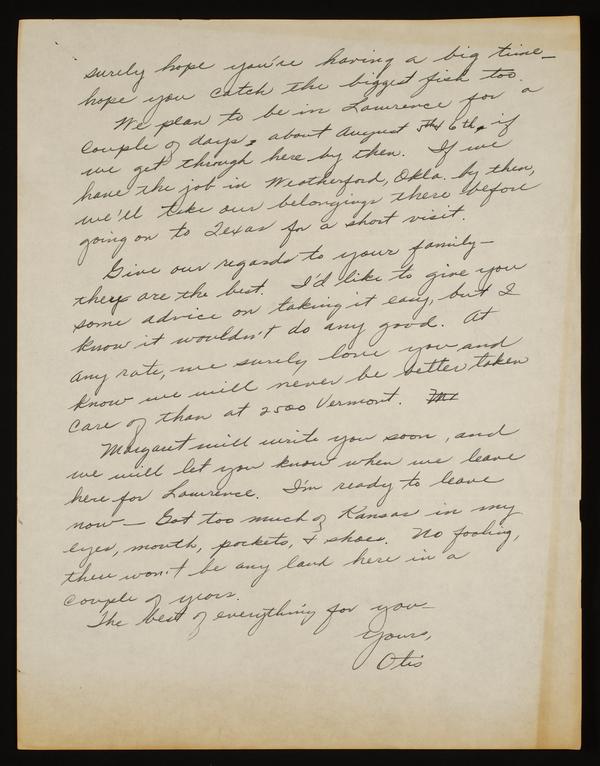 surely hope you're having a big time—
hope you catch the biggest fish too.
We plan to be in Lawrence for a
couple of days, about August 5th & 6th, if
we get through here by then. If we
have the job in Weatherford, Okla. by then,
we'll take our belongings there before
going on to Texas for a short visit.
Give our regards to your family—
they are the best. I'd like to give you
some advice on taking it easy, but I
know it wouldn't do any good. At
any rate, we surely love you and
know we will never be better taken
care of than at 2500 Vermont.
Margaret will write you soon, and
we will let you know when we leave
here for Lawrence. I'm ready to leave
now — Got too much of Kansas in my
eyes, mouth, pockets, & shoes. No fooling,
there won't be any land here in a
couple of years.
The best of everything for you—
Yours,
Otis